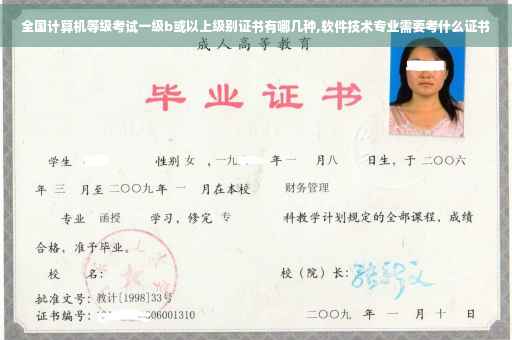 全国计算机等级考试一级b或以上级别证书有哪几种,软件技术专业需要考什么证书
成人高等教育
毕业证书
学生 性别 女 ,一九 年一 月八 日生,于二〇〇六
年 三 月至二〇〇九年 一 月在本校 财务管理
专业 函授 学习,修完 专 科教学计划规定的全部课程,成绩
合格,准予毕业。
校 名: 校(院)长:
批准文号:教计[1998]33号
证书编号: 06001310 二〇〇九 年 一 月 十 日